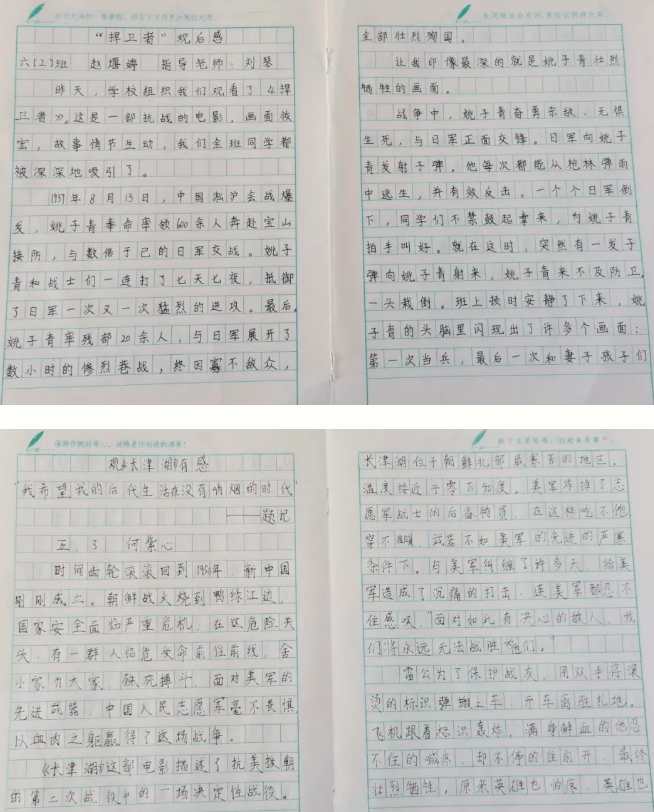 “捍卫者”观后感
六(2)班 赵堰婷 指导老师:刘琴
昨天,学校组织我们观看了《捍
卫者》。这是一部抗战的电影,画面恢
宏,故事情节生动,我们全班同学都
被深深地吸引了。
1937年8月13日,中国淞沪会战爆
发,姚子青奉命率领600余人奔赴宝山
接防,与数倍于己的日军交战。姚子
青和战士们一连打了七天七夜,抵御
了日军一次又一次猛烈的进攻。最后,
姚子青率残部20余人,与日军展开了
数小时的惨烈巷战,终因寡不敌众,
全部壮烈殉国。
让我印像最深的就是姚子青壮烈
牺牲的画面。
战争中,姚子青奋勇杀敌、无惧
生死,与日军正面交锋。日军向姚子
青发射子弹,他每次都能从枪林弹雨
中逃生,并有效反击。一个个日军倒
下,同学们不禁鼓起掌来,为姚子青
拍手叫好。就在这时,突然有一发子
弹向姚子青射来,姚子青来不及防卫,
一头栽倒。班上顿时安静了下来,姚
子青的头脑里闪现出了许多个画面:
第一次当兵,最后一次和妻子孩子们
保持你的好奇心,
观《长津湖》有感
“我希望我的后代生活在没有硝烟的时代”
——题记
五.3 何紫心
时间齿轮滚滚回到1950年,新中国
刚刚成立。朝鲜战火烧到鸭绿江边,
国家安全面临严重危机,在这危险关
头,有一群人临危受命前往前线,舍
小家为大家,殊死搏斗,面对美军的
先进武器,中国人民志愿军毫不畏惧,
以血肉之躯赢得了这场战争。
《长津湖》这部电影描述了抗美援朝
的第二次战役中的一场决定性战役。
长津湖位于朝鲜北部最寒苦的地区,
温度接近于零下40度。美军炸掉了志
愿军战士的后备物资,在这样吃不饱
穿不暖,武器不如美军的先进的严寒
条件下,与美军纠缠了许多天,给美
军造成了沉痛的打击,连美军都忍不
住感叹:“面对如此有决心的敌人,我
们将永远无法战胜他们。”
雷公为了保护战友,用双手将滚
烫的标识弹搬上车,开车离驻扎地。
飞机跟着标识轰炸,满身鲜血的他忍
不住的喊疼,却不停的往前开,最终
壮烈牺牲,原来英雄也怕疼,英雄也